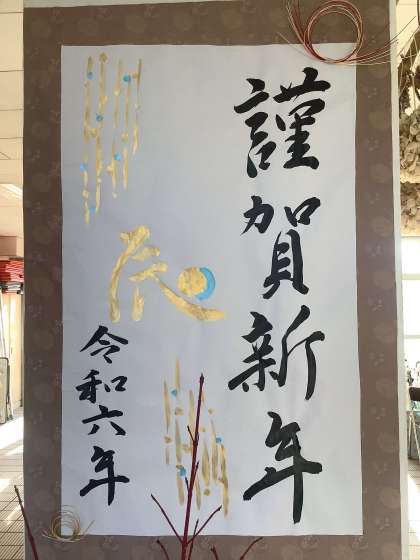 謹賀新年
辰
令和六年